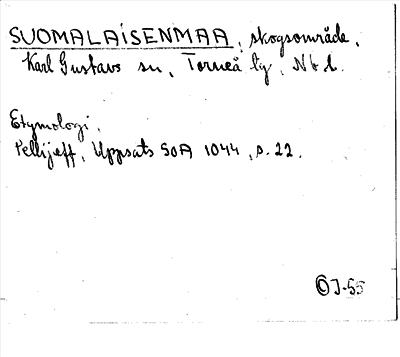 SUOMALAISENMAA, skogsområde,
Karl Gustavs sn, Torneå lg, Nbl.
Etymologi,
Pellijeff, Uppsats SOA 1044, s. 22.
© J-55